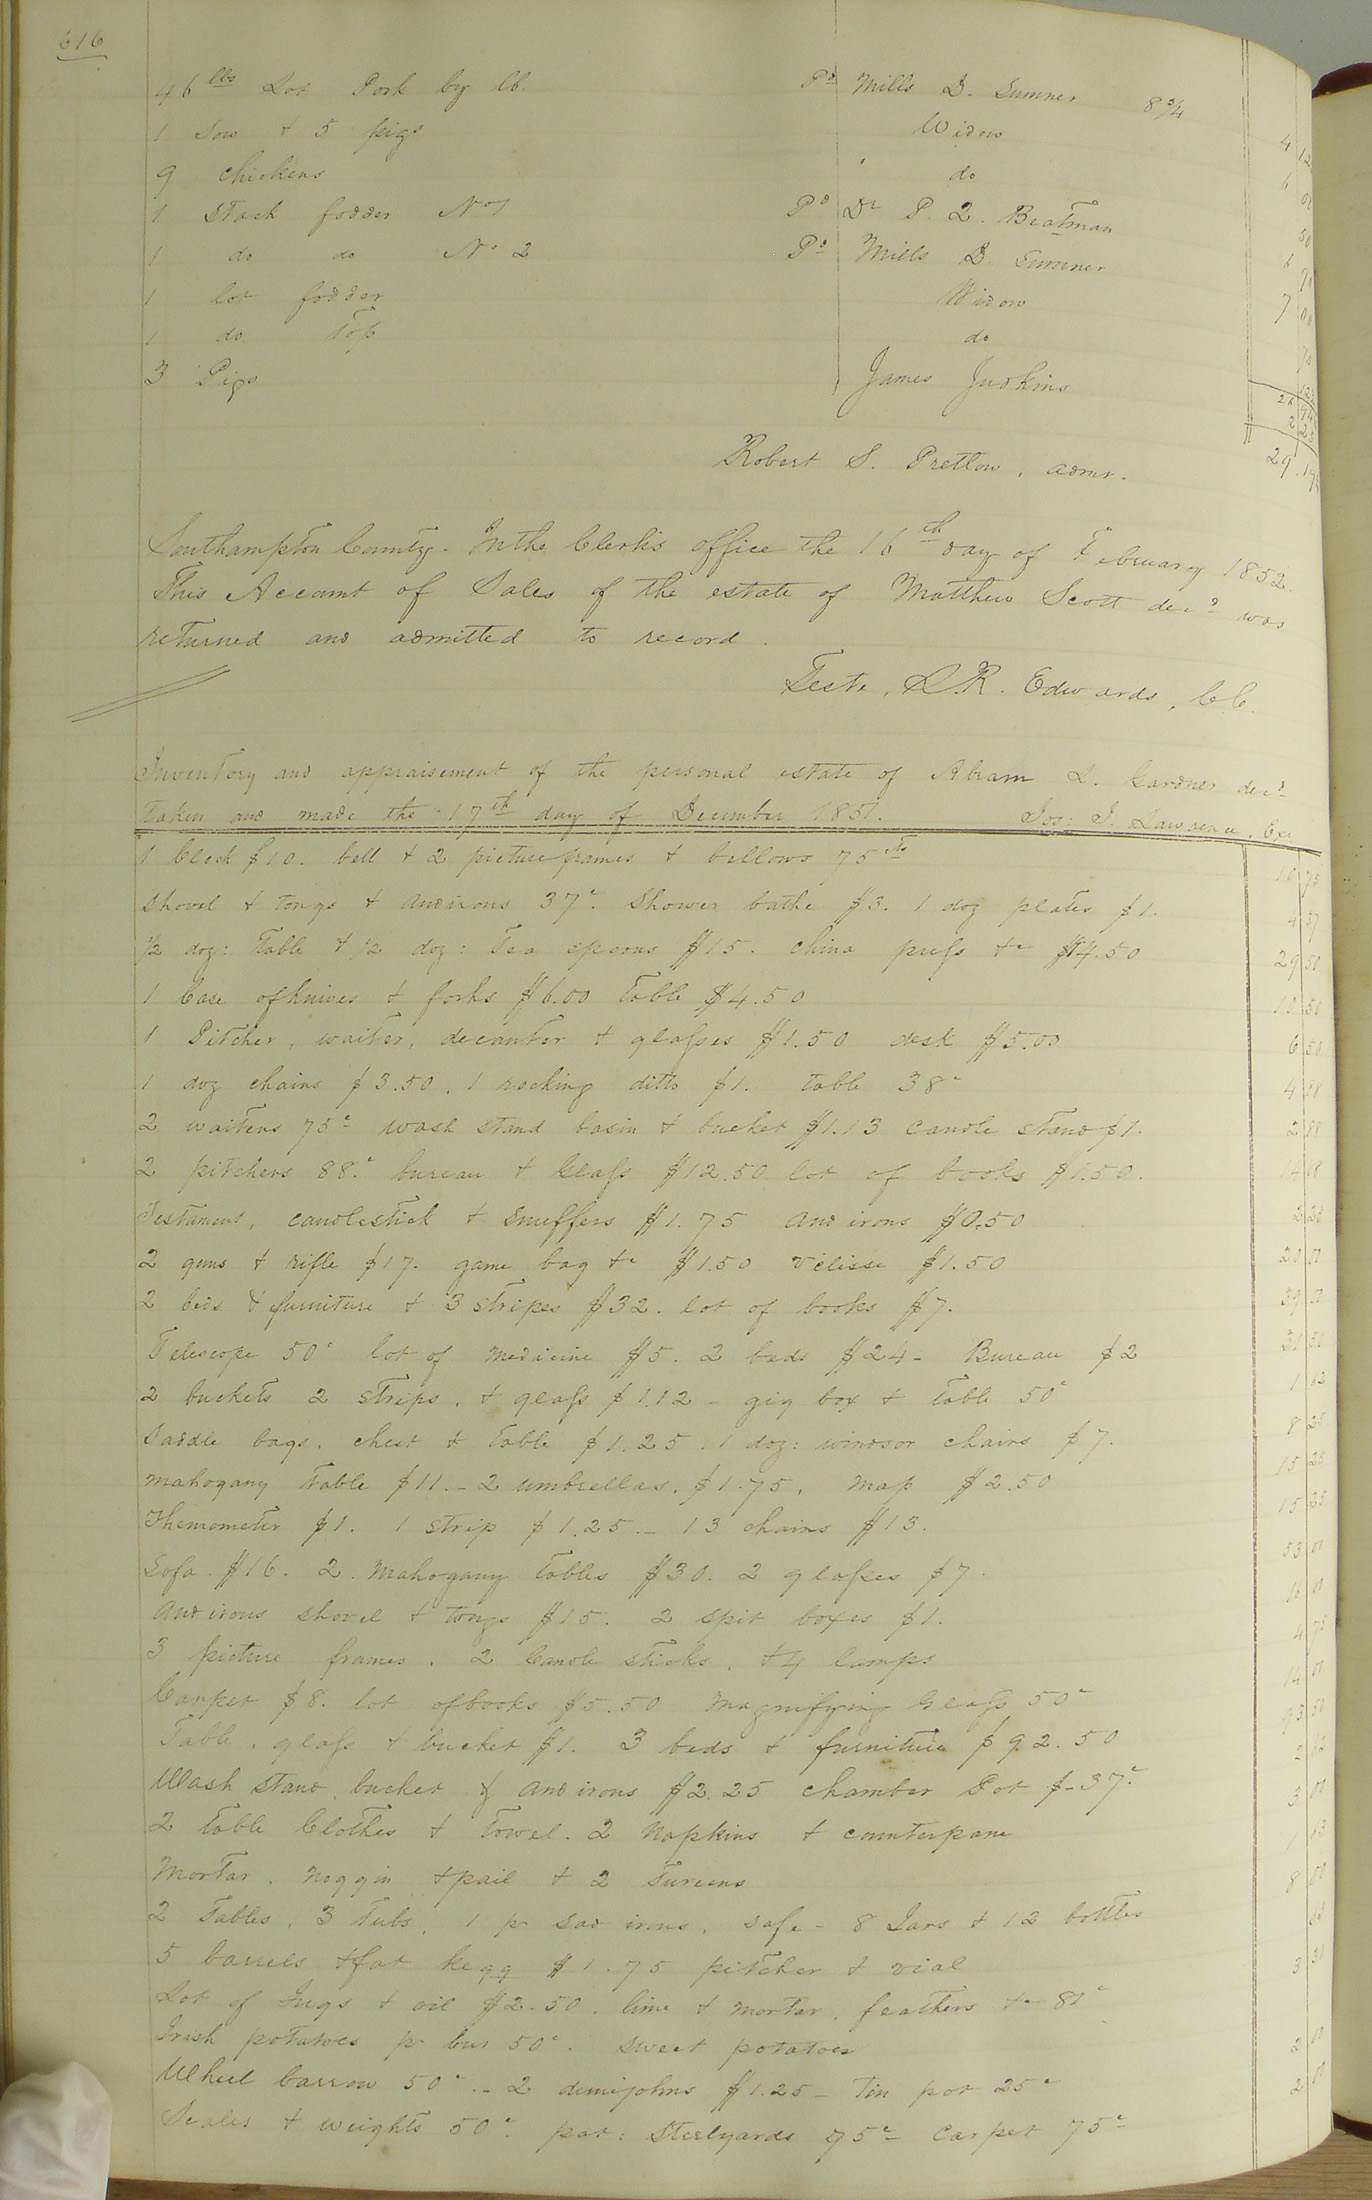 616
46 lbs Lot Pork by lb. Pd Mills D. Sumner 8 3/4
1 Sow & 5 pigs Widow 4 12
9 chickens do 6
1 Stack fodder No 1 Pd Dr P. Q. Beatman 50
1 do do No 2 Pd Mills D. Sumner 6
1 lot fodder Widow 7 00
1 do Top do
3 Pigs James Judkins
2 25
Robert S. Pretlow, admr. 29.19
Southampton County. In the Clerk's office the 16th day of February 1852.
This Account of Sales of the estate of Matthew Scott decd was
returned and admitted to record.
Teste, L.R. Edwards, C.C.
Inventory and appraisement of the personal estate of Abram L. Gardner decd
taken and made the 17th day of December 1851. Jos: J. Lawrence. Exr
1 Clock $10. bell & 2 picture frames & bellows 75cts 10 75
Shovel & tongs & andirons 37c. Shower bathe $3. 1 doz plates $1. 4 37
1/2 doz: Table & 1/2 doz: Tea spoons $15. China press &c $14.50 29 50
1 Case of knives & forks $6.00 table $4.50 10 50
1 Pitcher, waiter, decanter & glasses $1.50 desk $5.00 6 50
1 doz chairs $3.50. 1 rocking ditto $1. table 38c 4 88
2 waiters 75c wash stand basin & bucket $1.13 candle stand $1. 2 88
2 pitchers 88c. bureau & Glass $12.50 lot of books $1.50. 14 88
Testament, candlestick & snuffers $1.75 And irons $0.50 2 25
2 guns & rifle $17. game bag &c $1.50 velisse $1.50 20 00
2 beds & furniture & 3 stripes $32. lot of books $7. 39 00
Telescope 50c lot of medicine $5. 2 beds $24- Bureau $2 31 50
2 buckets 2 strips, & glass $1.12 - gig box & table 50c 1 62
Saddle bags, chest & table $1.25. 1 doz: windsor chairs $7. 8 25
Mahogany table $11. - 2 umbrellas. $1.75, map $2.50 15 25
Themometer $1. 1 strip $1.25. - 13 chairs $13. 15 25
Sofa. $16. 2. Mahogany tables $30. 2 glasses $7. 53 00
Andirons shovel & tongs $15. 2 spit boxes $1. 16 00
3 picture frames. 2 Candle sticks. & 4 lamps 4 75
Carpet $8. lot of books $5.50 Magnifying Glass 50c 14 00
Table, glass & bucket $1. 3 beds & furniture $92.50 93 50
Wash stand, bucket & and irons $2.25 chamber Pot $-37c. 2 62
2 table Clothes & towel. 2 Napkins & counterpane 3 00
Mortar, noggin & pail & 2 tureens 1 63
2 Tables, 3 Tubs, 1 pr sad irons, safe - 8 Jars & 12 bottles 8 00
5 barrels & fat kegg $1.75 pitcher & vial
Lot of Jugs & oil $2.50. lime & mortar, feathers &c 81c 3 31
Irish potatoes pr bus 50c. sweet potatoes
Wheel barrow 50c. - 2 demijohns $1.25 - Tin pot 25c 2 00
Scales & weights 50c. pat: Steelyards 75c carpet 75c 2 00